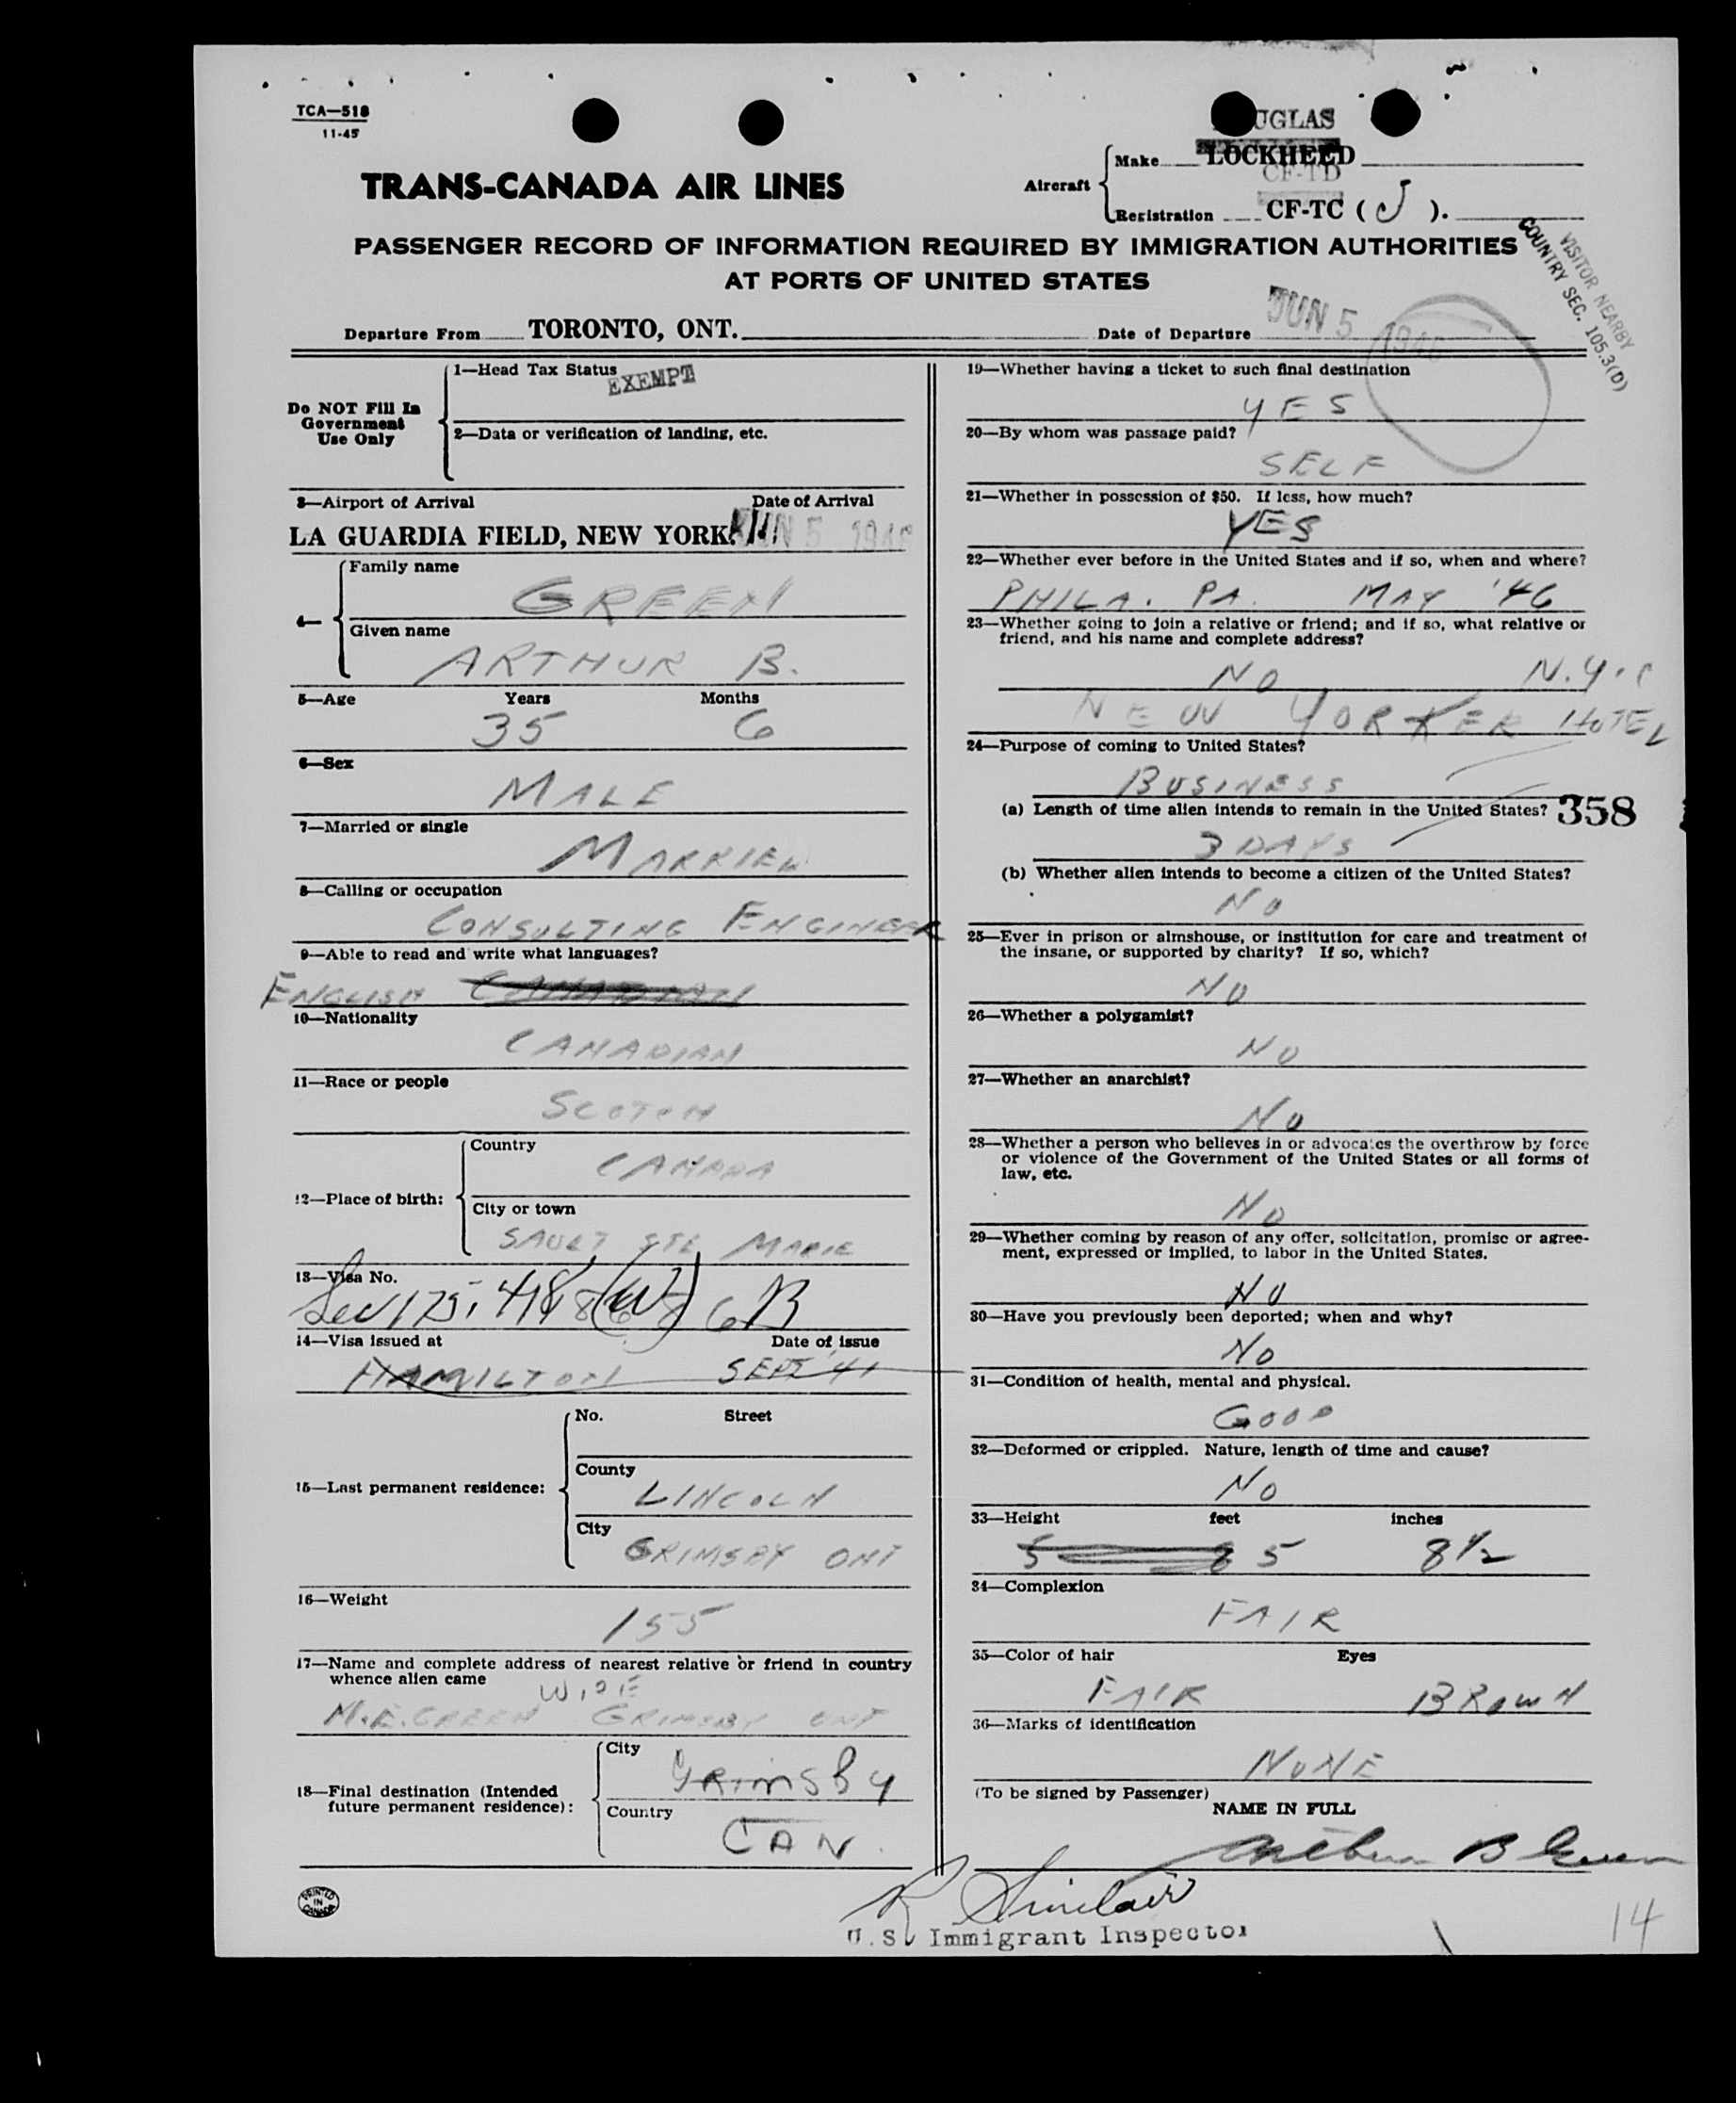 TCA—518
11-45
DOUGLAS
TRANS-CANADA AIR LINES
Aircraft
Make LOCKHEED
CF-TD
Registration CF-TC ( J ).
PASSENGER RECORD OF INFORMATION REQUIRED BY IMMIGRATION AUTHORITIES
AT PORTS OF UNITED STATES
VISITOR NEARBY
COUNTRY SEC. 105.3(D)
Departure From TORONTO, ONT. Date of Departure JUN 5 1946
Do NOT Fill In
Government
Use Only
1—Head Tax Status
EXEMPT
2—Data or verification of landing, etc.
3—Airport of Arrival Date of Arrival
LA GUARDIA FIELD, NEW YORK. JUN 5 1946
4—
Family name
GREEN
Given name
ARTHUR B.
5—Age Years Months
35 6
6—Sex
MALE
7—Married or single
MARRIED
8—Calling or occupation
CONSULTING ENGINEER
9—Able to read and write what languages?
ENGLISH CANADIAN
10—Nationality
CANADIAN
11—Race or people
SCOTCH
12—Place of birth:
Country
CANADA
City or town
SAULT STE MARIE
13—Visa No.
Sec 175.
14—Visa issued at Date of issue
HAMILTON SEPT '41
15—Last permanent residence:
No. Street
County
LINCOLN
City
GRIMSBY ONT
16—Weight
155
17—Name and complete address of nearest relative or friend in country
whence alien came
WIFE
M.E. GREEN GRIMSBY ONT
18—Final destination (Intended
future permanent residence):
City
GRIMSBY
Country
CAN.
PRINTED
IN
CANADA
19—Whether having a ticket to such final destination
YES
20—By whom was passage paid?
SELF
21—Whether in possession of $50. If less, how much?
YES
22—Whether ever before in the United States and if so, when and where?
PHILA. PA. MAY '46
23—Whether going to join a relative or friend; and if so, what relative or
friend, and his name and complete address?
NO N.Y.C
NEW YORKER HOTEL
24—Purpose of coming to United States?
BUSINESS
(a) Length of time alien intends to remain in the United States? 358
3 DAYS
(b) Whether alien intends to become a citizen of the United States?
NO
25—Ever in prison or almshouse, or institution for care and treatment of
the insane, or supported by charity? If so, which?
NO
26—Whether a polygamist?
NO
27—Whether an anarchist?
NO
28—Whether a person who believes in or advocates the overthrow by force
or violence of the Government of the United States or all forms of
law, etc.
NO
29—Whether coming by reason of any offer, solicitation, promise or agree-
ment, expressed or implied, to labor in the United States.
NO
30—Have you previously been deported; when and why?
NO
31—Condition of health, mental and physical.
GOOD
32—Deformed or crippled. Nature, length of time and cause?
NO
33—Height feet inches
5 8 5 8½
34—Complexion
FAIR
35—Color of hair Eyes
FAIR BROWN
36—Marks of identification
NONE
(To be signed by Passenger)
NAME IN FULL
Arthur B Green
R Sinclair
U.S. Immigrant Inspector
14